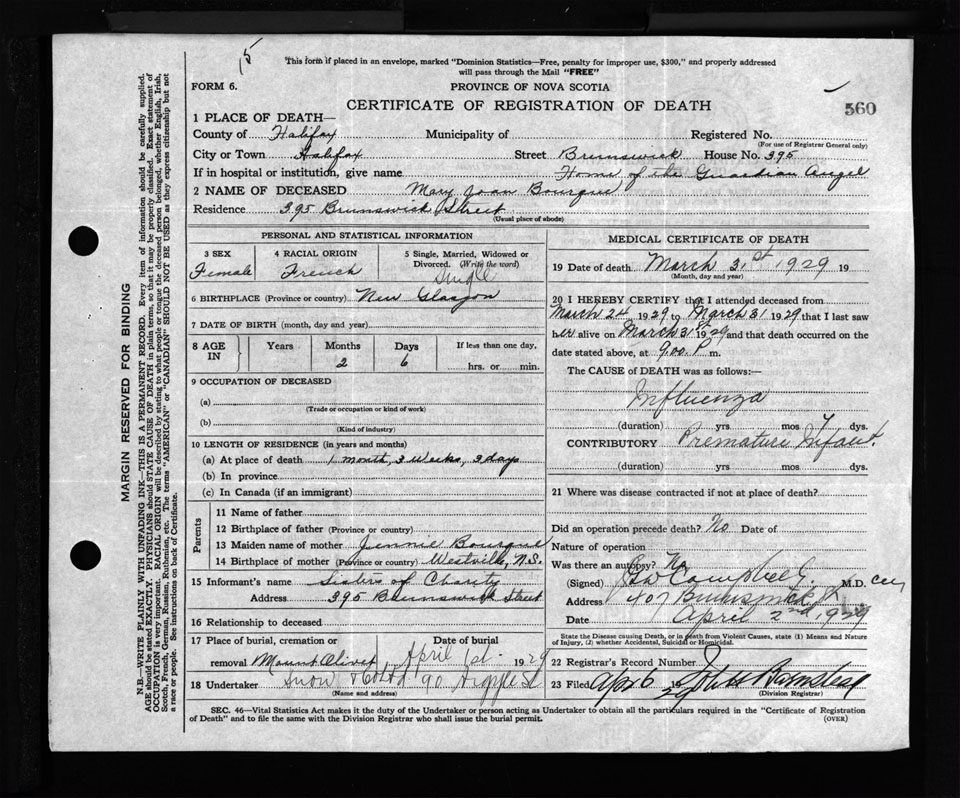 15
This form if placed in an envelope, marked "Dominion Statistics—Free, penalty for improper use, $300," and properly addressed
will pass through the Mail "FREE"
FORM 6.
PROVINCE OF NOVA SCOTIA
CERTIFICATE OF REGISTRATION OF DEATH
560
MARGIN RESERVED FOR BINDING
N.B.—WRITE PLAINLY WITH UNFADING INK—THIS IS A PERMANENT RECORD. Every item of information should be carefully supplied.
AGE should be stated EXACTLY. PHYSICIANS should STATE CAUSE OF DEATH in plain terms, so that it may be properly classified. Exact statement of
OCCUPATION is very important. RACIAL ORIGIN will be described by stating to what people or tongue the deceased person belonged, whether English, Irish,
Scotch, French, German, Russian, Ruthenian, etc. The terms "AMERICAN" or "CANADIAN" SHOULD NOT BE USED as they express citizenship but not
a race or people. See instructions on back of Certificate.
1 PLACE OF DEATH—
County of Halifax Municipality of Registered No.
(For use of Registrar General only)
City or Town Halifax Street Brunswick House No. 395
If in hospital or institution, give name Home of the Guardian Angel
2 NAME OF DECEASED Mary Joan Bourque
Residence 395 Brunswick Street
(Usual place of abode)
PERSONAL AND STATISTICAL INFORMATION
3 SEX 4 RACIAL ORIGIN 5 Single, Married, Widowed or
Divorced. (Write the word)
Female French Single
6 BIRTHPLACE (Province or country) New Glasgow
7 DATE OF BIRTH (month, day and year)
8 AGE IN Years Months Days If less than one day,
2 6 hrs. or min.
9 OCCUPATION OF DECEASED
(a)
(Trade or occupation or kind of work)
(b)
(Kind of industry)
10 LENGTH OF RESIDENCE (in years and months)
(a) At place of death 1 month, 3 Weeks, 3 days
(b) In province
(c) In Canada (if an immigrant)
Parents
11 Name of father
12 Birthplace of father (Province or country)
13 Maiden name of mother Jennie Bourque
14 Birthplace of mother (Province or country) Westville, N.S.
15 Informant's name Sisters of Charity
Address 395 Brunswick Street
16 Relationship to deceased
17 Place of burial, cremation or Date of burial
removal Mount Olivet April 1st. 1929
18 Undertaker Snow & Co Ltd 90 Argyle St
(Name and address)
MEDICAL CERTIFICATE OF DEATH
19 Date of death March 31st 1929 19
(Month, day and year)
20 I HEREBY CERTIFY that I attended deceased from
March 24 1929 to March 31 1929 that I last saw
her alive on March 31st 1929 and that death occurred on
date stated above, at 9.00 P m.
The CAUSE of DEATH was as follows:—
Influenza
(duration) yrs mos 7 dys.
CONTRIBUTORY Premature Infant.
(duration) yrs mos dys.
21 Where was disease contracted if not at place of death?
Did an operation precede death? No Date of
Nature of operation
Was there an autopsy? No
(Signed) Campbell M.D.
Address 407 Brunswick St
Date April 2nd, 1929
State the Disease causing Death, or in death from Violent Causes, state (1) Means and Nature
of Injury, (2) whether Accidental, Suicidal or Homicidal.
22 Registrar's Record Number
23 Filed Apr 6 1929 John Barnstead
(Division Registrar)
SEC. 46—Vital Statistics Act makes it the duty of the Undertaker or person acting as Undertaker to obtain all the particulars required in the "Certificate of Registration
of Death" and to file the same with the Division Registrar who shall issue the burial permit.
(OVER)